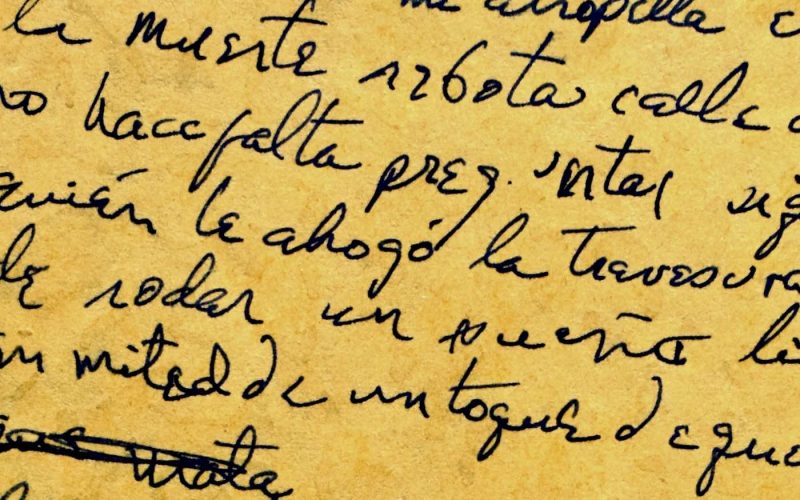 me atropella
la muerte rebota calle
no hace falta preguntar sig
quién le ahogó la travesura
de rodar un sueño li
en mitad de un toque de que
mata